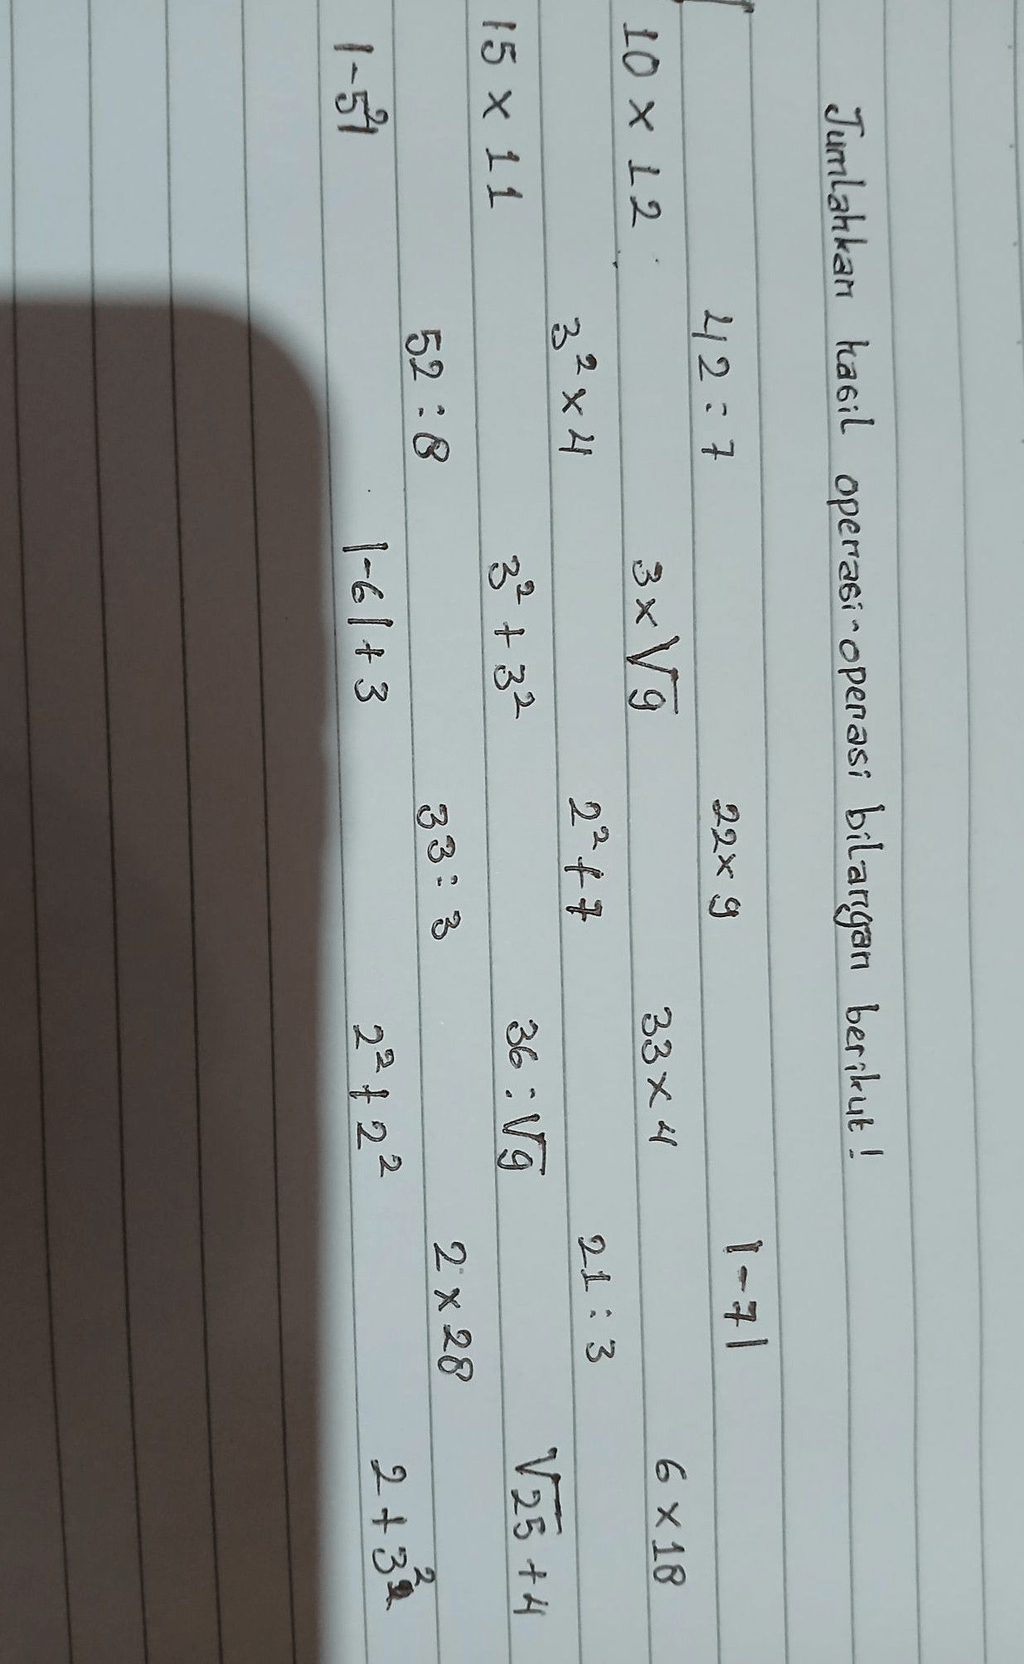 Jumlahkan hasil operasi-operasi bilangan berikut!
42 : 7 22 × 9 |-7|
10 × 12 3 × √9 33 × 4 6 × 18
3² × 4 2² + 7 21 : 3
15 × 11 3² + 3² 36 : √9 √25 + 4
52 : 8 33 : 3 2 × 28
|-5²| |-6| + 3 2² + 2² 2 + 3²